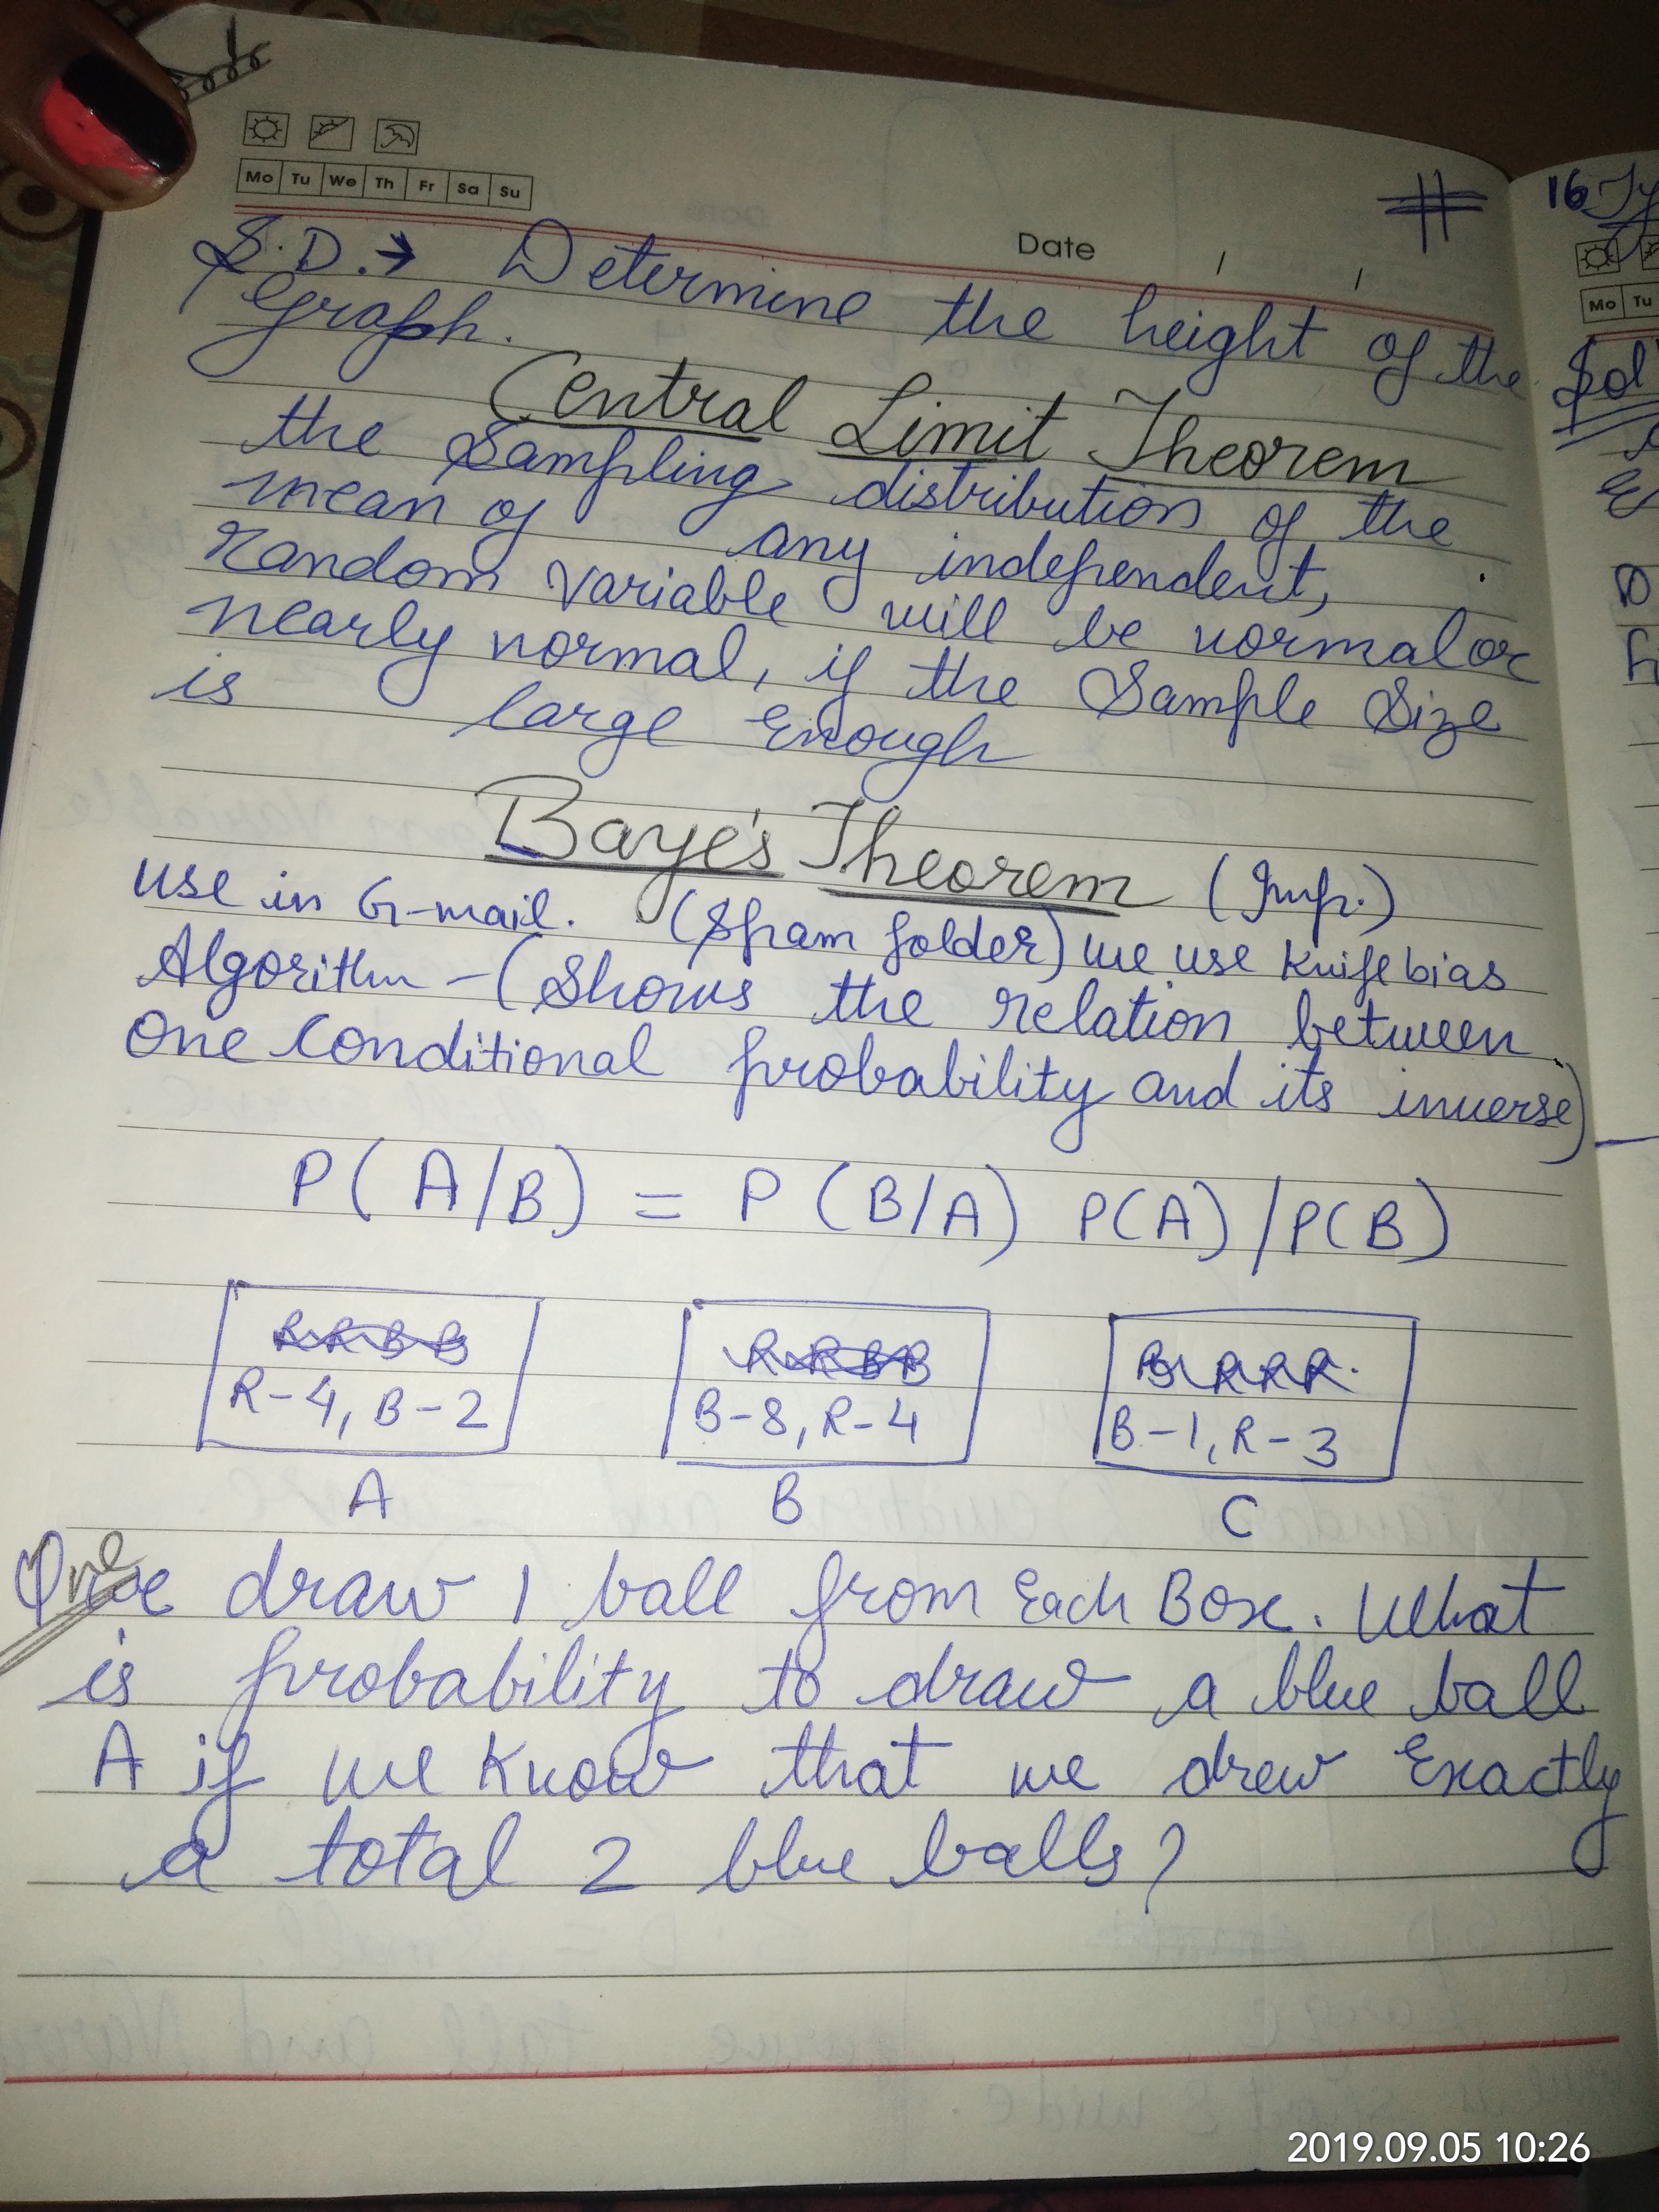 Mo Tu We Th Fr Sa Su
Date / /
S.D. → Determine the height of the
graph.
Central Limit Theorem
the Sampling distribution of the
mean of any independent,
random variable will be normal or
nearly normal, if the Sample Size
is large enough
Baye's Theorem (Imp.)
use in G-mail. (Spam folder) we use Knife bias
Algorithm - (Shows the relation between
one conditional probability and its inverse)
P(A/B) = P(B/A) P(A)/P(B)
R R B B
R R B B
B R R R
R-4, B-2
B-8, R-4
B-1, R-3
A
B
C
One draw 1 ball from Each Box. What
is probability to draw a blue ball
A if we know that we drew Exactly
a total 2 blue balls?
16
Mo Tu
Sol
2019.09.05 10:26